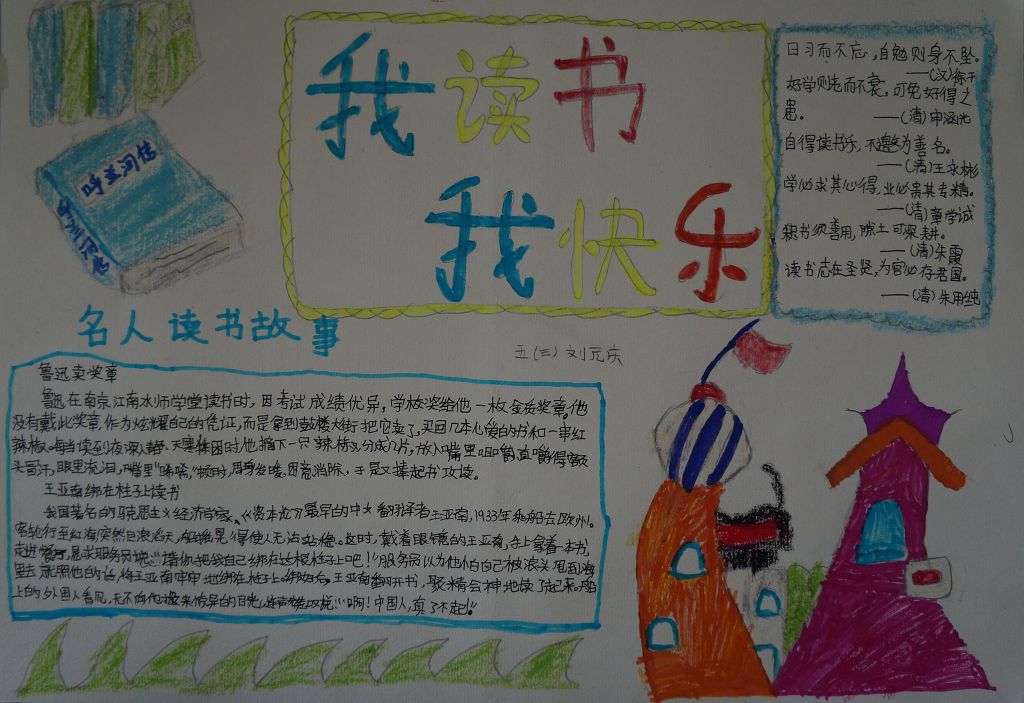 我读书
我快乐
呼兰河传
日习而不忘，自勉则身不坠。
——(汉)徐干
好学则老而不衰，可免好得之
患。
——(清)申涵光
自得读书乐，不邀为善名。
——(清)王永彬
学必求其心得，业必贵其专精。
——(清)章学诚
积书须善用，隙土可深耕。
——(清)朱霞
读书志在圣贤，为官心存君国。
——(清)朱用纯
名人读书故事
五(三)刘元庆
鲁迅卖奖章
鲁迅在南京江南水师学堂读书时，因考试成绩优异，学校奖给他一枚金质奖章。他
没有戴此奖章作为炫耀自己的凭证，而是拿到鼓楼大街把它卖了，买回几本心爱的书和一串红
辣椒。每当读到夜深人静、天寒体困时他摘下一只辣椒，分成几片，放入嘴里咀嚼，直嚼得额
头冒汗，眼里流泪，嘴里"唏嘘"，顿时，周身发暖，困意消除，于是又捧起书攻读。
王亚南绑在柱子上读书
我国著名的马克思主义经济学家、《资本论》最早的中文翻译者王亚南，1933年乘船去欧州。
客轮行至红海，突然巨浪滔天，船摇晃得使人无法站稳。这时，戴着眼镜的王亚南，手上拿着一本书，
走进餐厅，恳求服务员说："请你把我自己绑在这根柱子上吧！"服务员以为他怕自己被浪头甩到海
里去，就照他的话，将王亚南牢牢地绑在柱子上。绑好后，王亚南翻开书，聚精会神地读了起来。船
上的外国人看见，无不向他投来惊异的目光，连声赞叹说："啊！中国人，真了不起！"